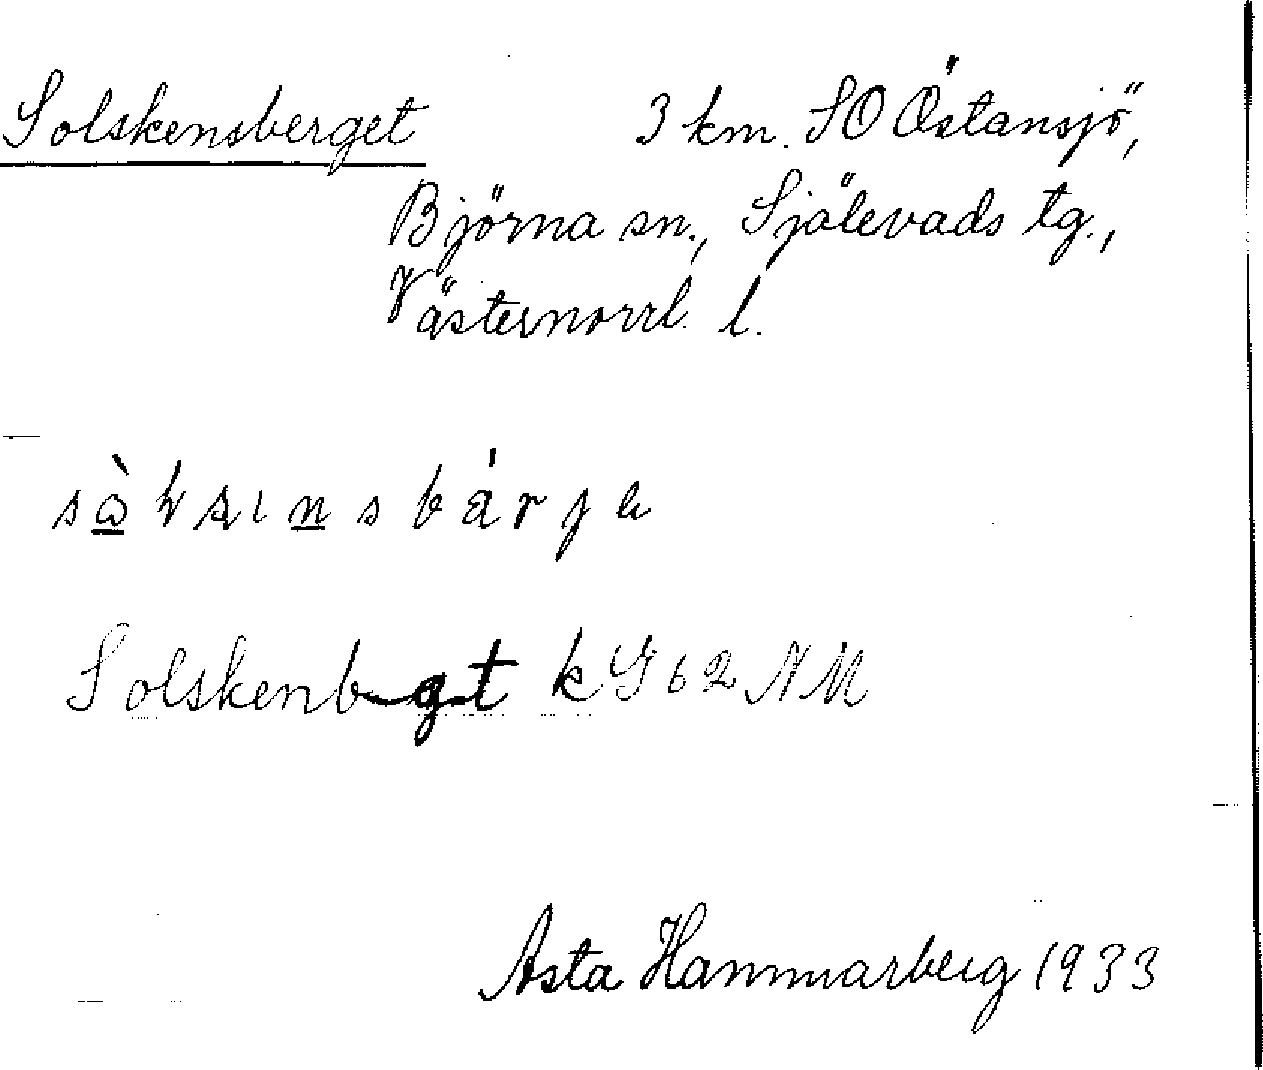 Solskensberget 3 km. SO Östansjö,
Björna sn., Själevads tg.,
Västernorrl. l.
Solskenbgt k G62NM
Asta Hammarberg 1933